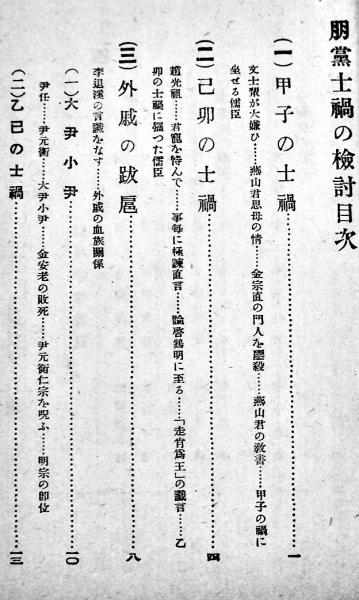 朋黨士禍の檢討目次
(一) 甲子の士禍……一
文士輩が大嫌ひ……燕山君思母の情……金宗直の門人を鏖殺……燕山君の敎書……甲子の禍に
坐せる儒臣
(二) 己卯の士禍……四
趙光祖……君寵を恃んで……事每に極諫直言……論啓鷄明に至る……「走肖爲王」の讖言……乙
卯の士禍に罹つた儒臣
(三) 外戚の跋扈……八
李退溪の言議をなす……外戚の血族關係
(一) 大尹小尹……一〇
尹任……尹元衡……大尹小尹……金安老の敗死……尹元衡仁宗を呪ふ……明宗の卽位
(二) 乙巳の士禍……一三